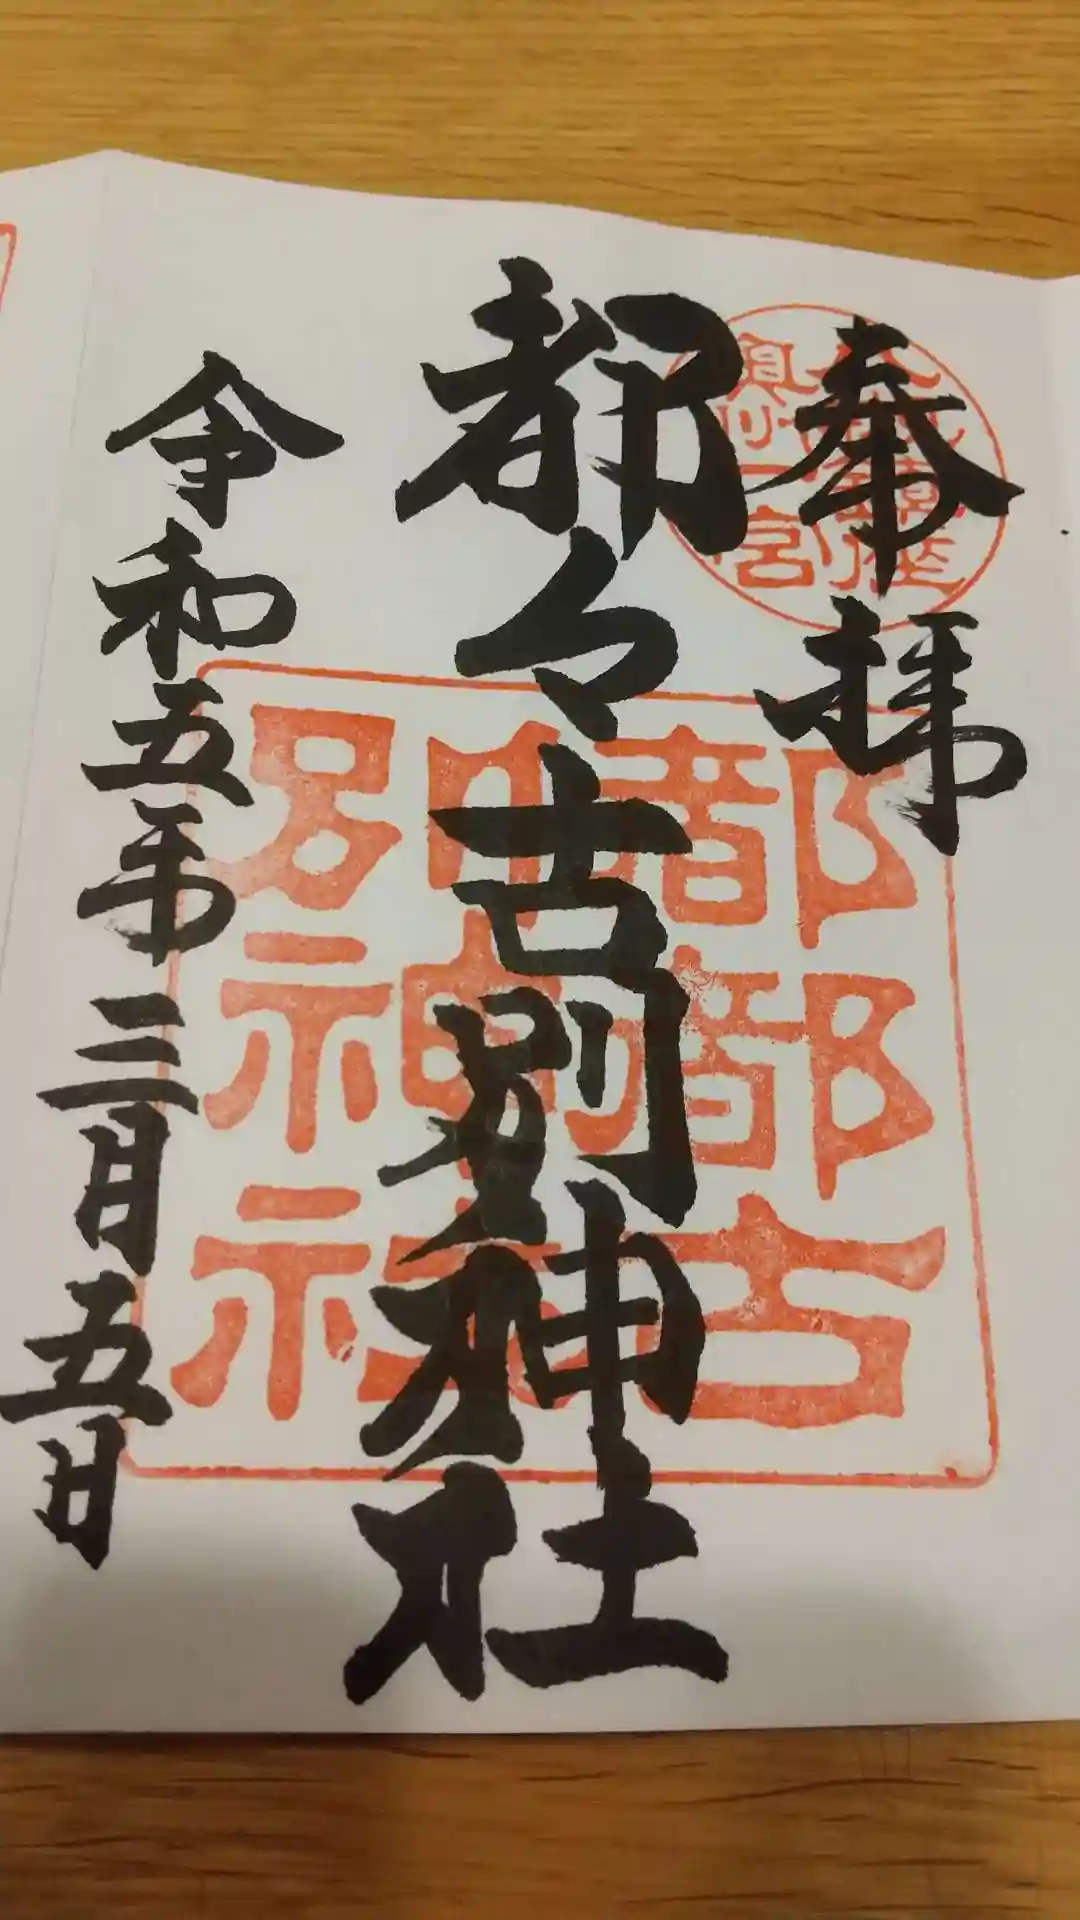 奉拝
八槻鎮座
奥州一宮
都々古別神社
都都古
別神社
令和五年三月五日